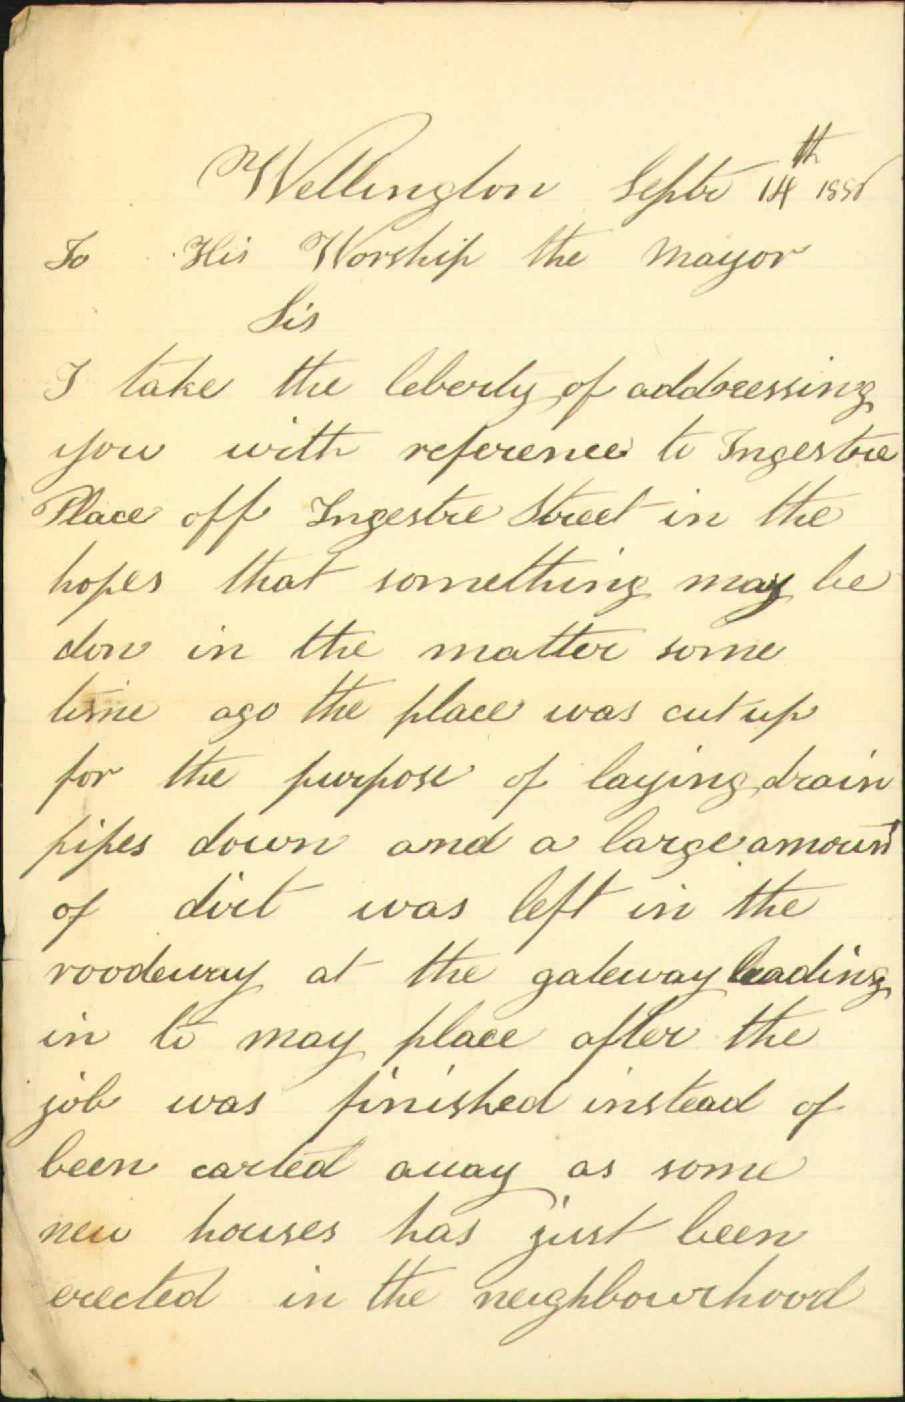 Wellington Septr 14th
To His Worship the Mayor
Sir
I take the leberty of addressing
you with reference to Ingestre
Place off Ingestre Street in the
hopes that something may be
don in the matter some
time ago the place was cut up
for the purpose of laying drain
pipes down and a large amount
of dirt was left in the
roodeway at the gateway leading
in to may place after the
job was finished instead of
been carted away as some
new houses has just been
erected in the neighbourhood